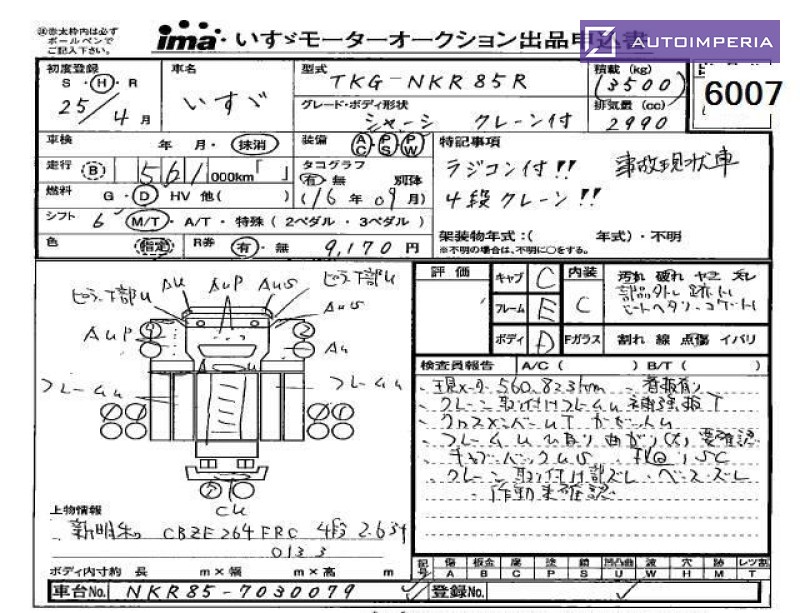 ※赤太枠内は必ず
ボールペンで
ご記入下さい。
ima・いすゞモーターオークション出品申込書
AUTOIMPERIA
6007
初度登録 S・H・R 25/4月
車名 いすゞ
型式 TKG-NKR85R
グレード・ボディ形状 シャーシ クレーン付
積載 (kg) (3500)
排気量 (cc) 2990
車検 年 月・抹消
装備 AC・PS・PW
特記事項
ラジコン付!! 事故現状車
4段クレーン!!
走行 B 561,000km
タコグラフ 有・無 別体
(16年09月)
燃料 G・D HV 他( )
シフト 6 M/T・A/T・特殊(2ペダル・3ペダル)
架装物年式:( 年式)・不明
※不明の場合は、不明に○をする。
色 指定 R券 有・無 9,170円
評価 キャブ C 内装 C
汚れ 破れ ヤニ ズレ
部品外し跡
フレーム E
ボディ D Fガラス 割れ 線 点傷 イバリ
ピラー下部U AU AUP AUS ピラー下部U
AUS
AUP AU
フレームU フレームU
CU
検査員報告 A/C ( ) B/T ( )
現メーター560,823km
クレーン取付けフレームU補強板T
クロスメンバーUT
フレームUひねり曲がり(大)要確認
キャブバックUS
クレーン取付け部ズレ、ベースズレ
作動未確認
上物情報
新明和 CBZE264FRC 4段 2.63t
0133
ボディ内寸約 長 m×幅 m×高 m
記号 傷A 板金B 腐C 塗P 錆S 凹凸曲U 波W 穴H 跡M レンズ割T
車台No. NKR85-7030079 登録No.